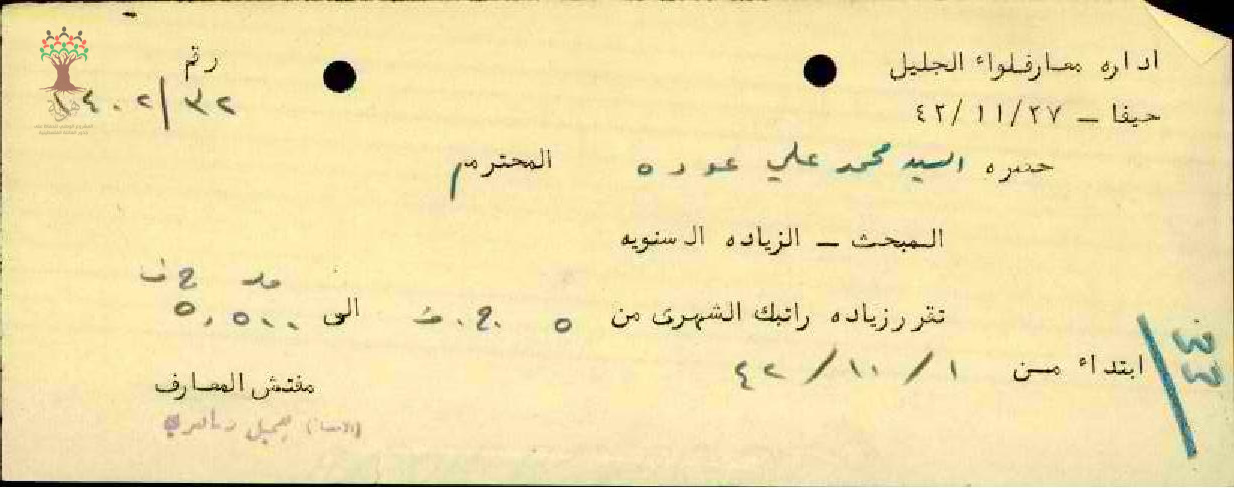 اداره معارف لواء الجليل
رقم ١٤٠٢/٣٢
حيفا - ٤٢/١١/٢٧
حضره السيد محمد علي عوده المحترم
المبحث - الزياده السنويه
مل ج ف
تقرر زياده راتبك الشهرى من ٥ ج.ف الى ٥,٥٠٠
ابتداء من ٤٢/١٠/١
مفتش المعارف
(الامضاء) جميل